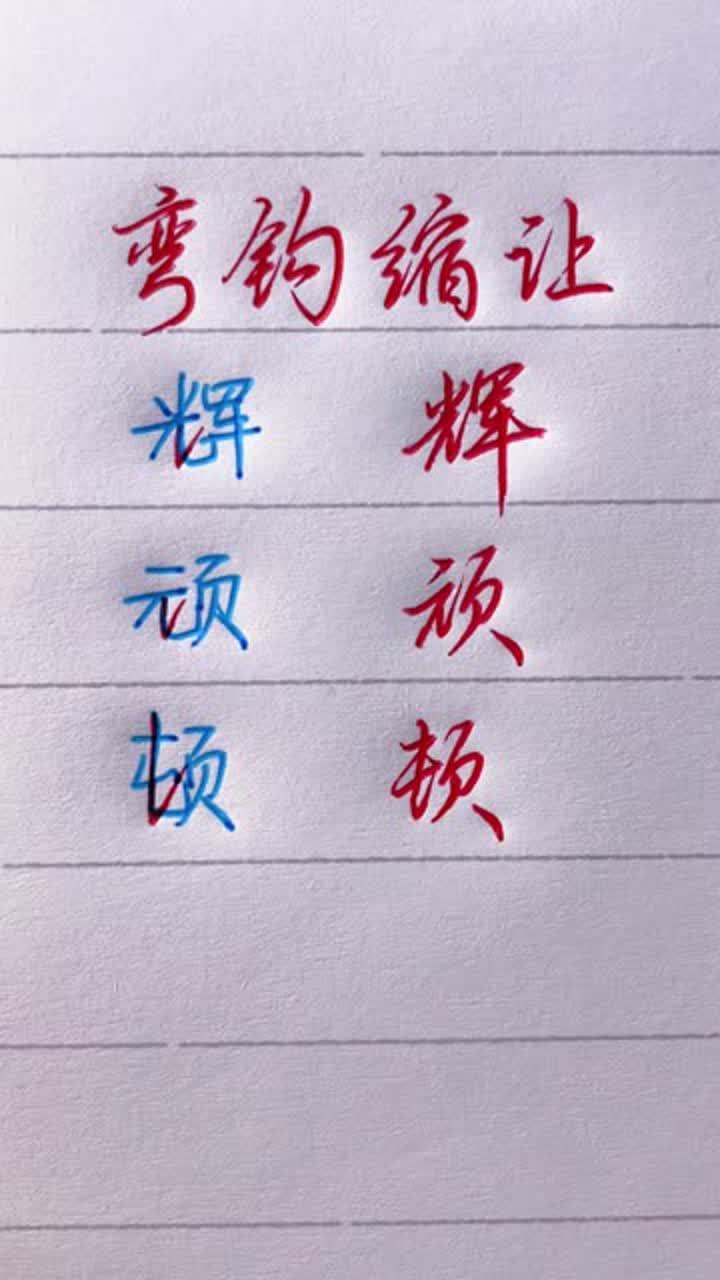 弯钩缩让
辉 辉
顽 顽
顿 顿